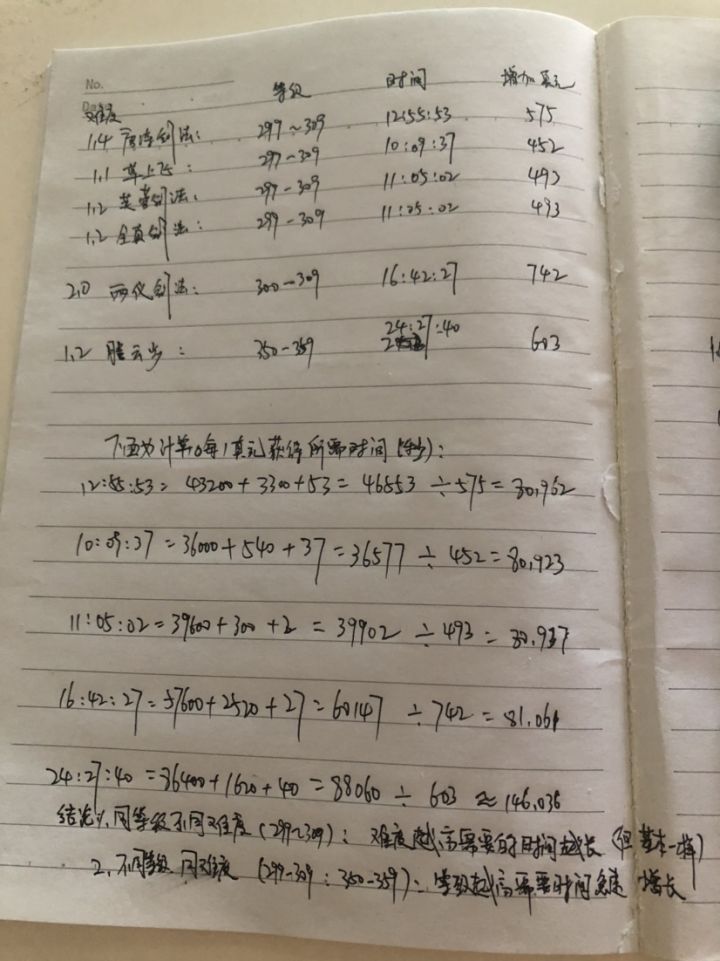 No.
等级 时间 增加真元
难度
1.4 剑法: 299~309 12:55:53 575
1.1 草上飞: 297-309 10:09:37 452
1.2 芙蓉剑法: 297-309 11:05:02 493
1.2 全真剑法: 299-309 11:05:02 493
2.0 两仪剑法: 300-309 16:42:27 742
1.2 腾云步: 350-359 24:27:40 603
下面为计算每1真元获得所需时间(秒):
12:55:53= 43200+3300+53= 46553 ÷575= 80.962
10:09:37 =36000+540+37=36577 ÷ 452=80.923
11:05:02=39600+300+2 = 39902 ÷493 = 80.937
16:42:27=57600+2520+27=60147 ÷742=81.061
24:27:40 =86400+1620+40=88060 ÷ 603 ≈146.036
结论1、同等级不同难度(299~309): 难度越高需要的时间越长(但基本一样)
2、不同等级同难度(299-309:350-359): 等级越高需要时间急速增长